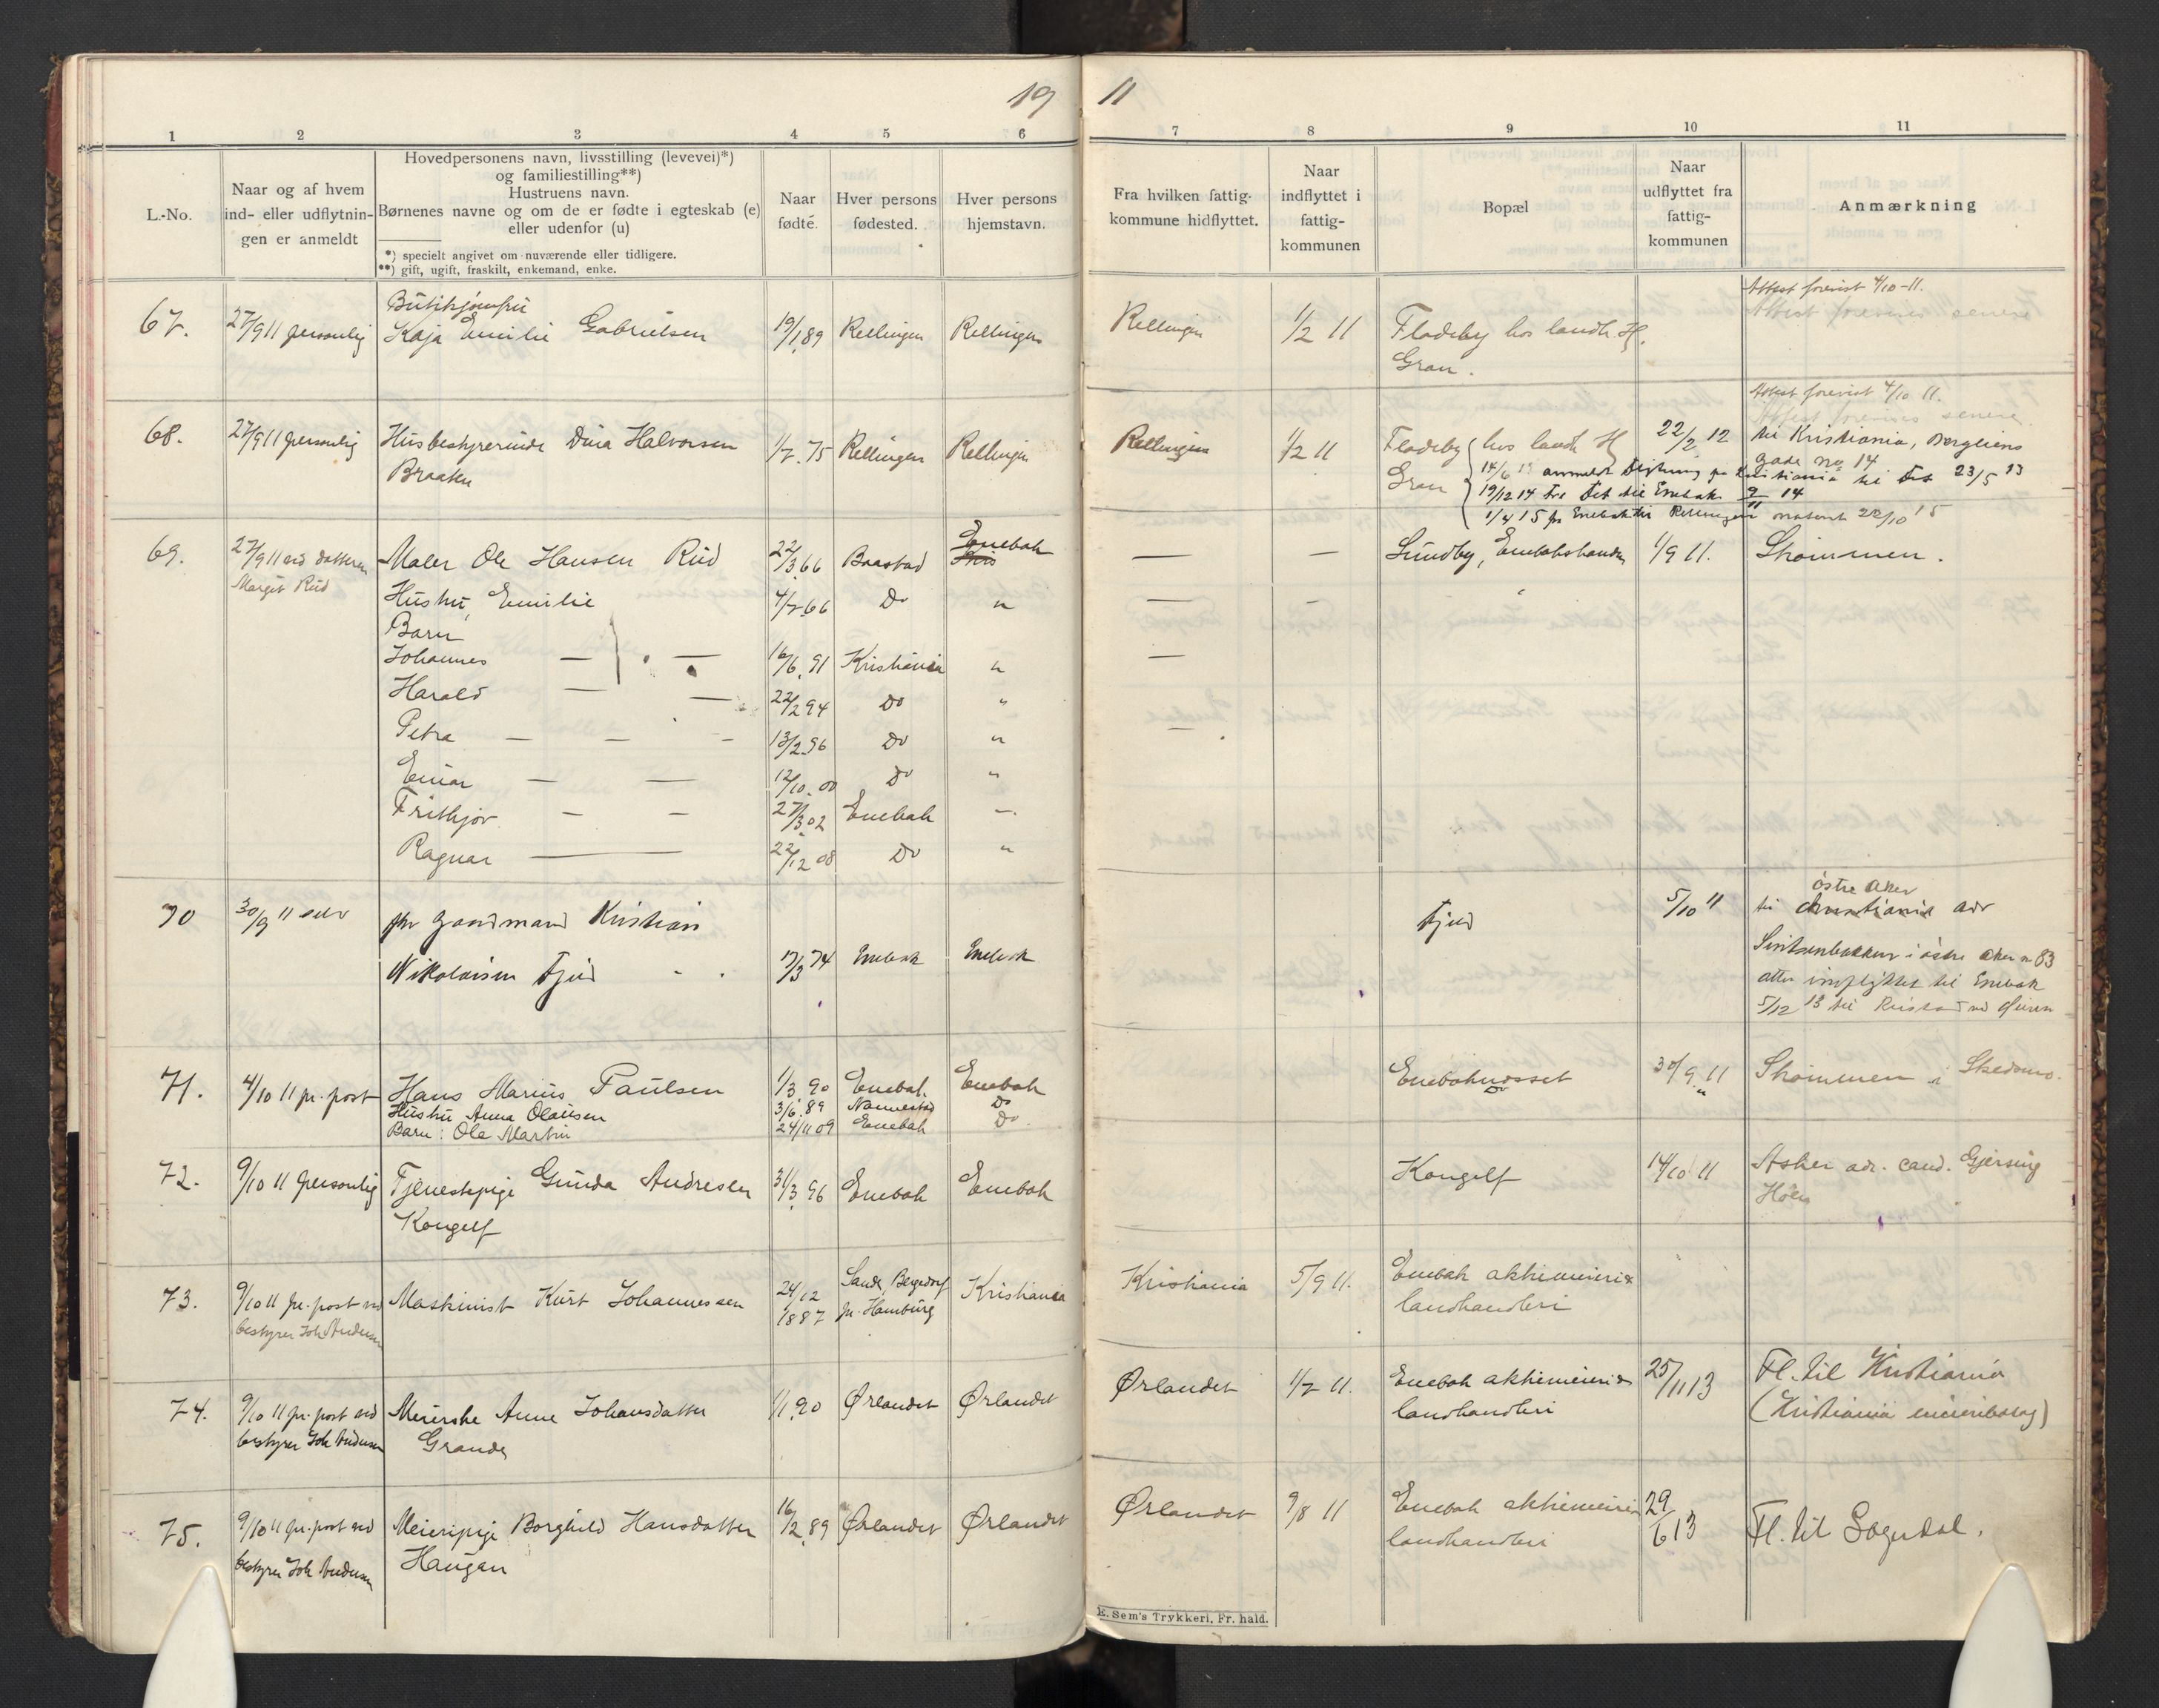 19 11
1 2 3 4 5 6 7 8 9 10 11
L.-No.
Naar og af hvem
ind- eller udflytnin-
gen er anmeldt
Hovedpersonens navn, livsstilling (levevei)*)
og familiestilling**)
Hustruens navn.
Børnenes navne og om de er fødte i egteskab (e)
eller udenfor (u)
*) specielt angivet om nuværende eller tidligere.
**) gift, ugift, fraskilt, enkemand, enke.
Naar
født.
Hver persons
fødested.
Hver persons
hjemstavn.
Fra hvilken fattig-
kommune hidflyttet.
Naar
indflyttet i
fattig-
kommunen
Bopæl
Naar
udflyttet fra
fattig-
kommunen
Anmærkning
Attest forevist 4/10-11.
Attest forevises senere
Butikjomfru
67. 27/9 11 personlig Kaja Emilie Gabrielsen 19/1.89 Rellingen Rellingen Rellingen 1/2 11 Fladeby hos landh. H.
Gran.
Attest forevist 4/10 11.
Attest forevises senere.
68. 27/9 11 personlig Husbestyrerinde Dina Halvorsen 1/7.75 Rellingen Rellingen Rellingen 1/2 11 Fladeby hos landh H 22/2 12 til Kristiania, Bergliens
Braaten Gran
gade no 14
14/6 anmeldt flytning fra Kristiania til 23/5 13
19/12 14 fra til Enebak 14
1/4 15 fra Enebak til Rellingen 22/10 15
69. 27/9 11 ved datteren Maler Ole Hansen Rud 22/3.66 Baastad Enebak — — Sundby, Enebakshanden 1/9 11. Strømmen.
Margit Rud
Hustru, Emilie 4/7.66 Do " — -
Barn
Johannes — — 16/6.91 Kristiania " —
Harald — — 22/2 94 Do "
Petra — — - 13/2.96 Do " -
Einar — — 12/10.00 Do "
Frithjov — — 27/3.02 Enebak —.
Ragnar — 22/12 08 Do "
70 30/9 11 selv gaardmand Kristian Tjud 5/10 11 til christiania adr
østre Aker
Nikolaisen Tjud - . 17/3 74 Enebak Enebak
i østre Aker no 83
atter indflyttet til Enebak
5/12 13 til
71. 4/10 11 pr. post Hans Marius Paulsen 1/3.90 Enebak. Enebak Enebaknesset 30/9 11 Strømmen i Skedsmo.
Hustru Anna Olausen 3/6.89 Nannestad Do Do "
Barn: Ole Martin 24/11 09 Enebak Do
72. 9/10 11 personlig Tjenestepige Gunda Andresen 31/3.96 Enebak Enebak Kongelf 14/10 11 Asker adr. cand. Gjersing
Kongelf
73. 9/10 11 pr. post ved Maskinist Kurt Johannessen 24/12 1887 Sande, Bergedorf Kristiania Kristiania 5/9 11. Enebak aktiemeieri &
bestyrer Joh Andersen pr. Hamburg landhandleri
74. 9/10 11 pr. post ved Meierske Anne Johansdatter 1/1.90 Ørlandet Ørlandet Ørlandet 1/7 11. Enebak aktiemeieri & 25/11 13 Fl. til Kristiania
bestyrer Joh Andersen Grande landhandleri (Kristiania meieribolag)
75. 9/10 11 pr. post ved Meieripige Borghild Hansdatter 16/2.89 Ørlandet Ørlandet Ørlandet 9/8 11 Enebak aktiemeieri 29/6 13 Fl. til Sogndal.
bestyrer Joh Andersen Haugan landhandleri
E. Sem's Trykkeri, Fr. hald.